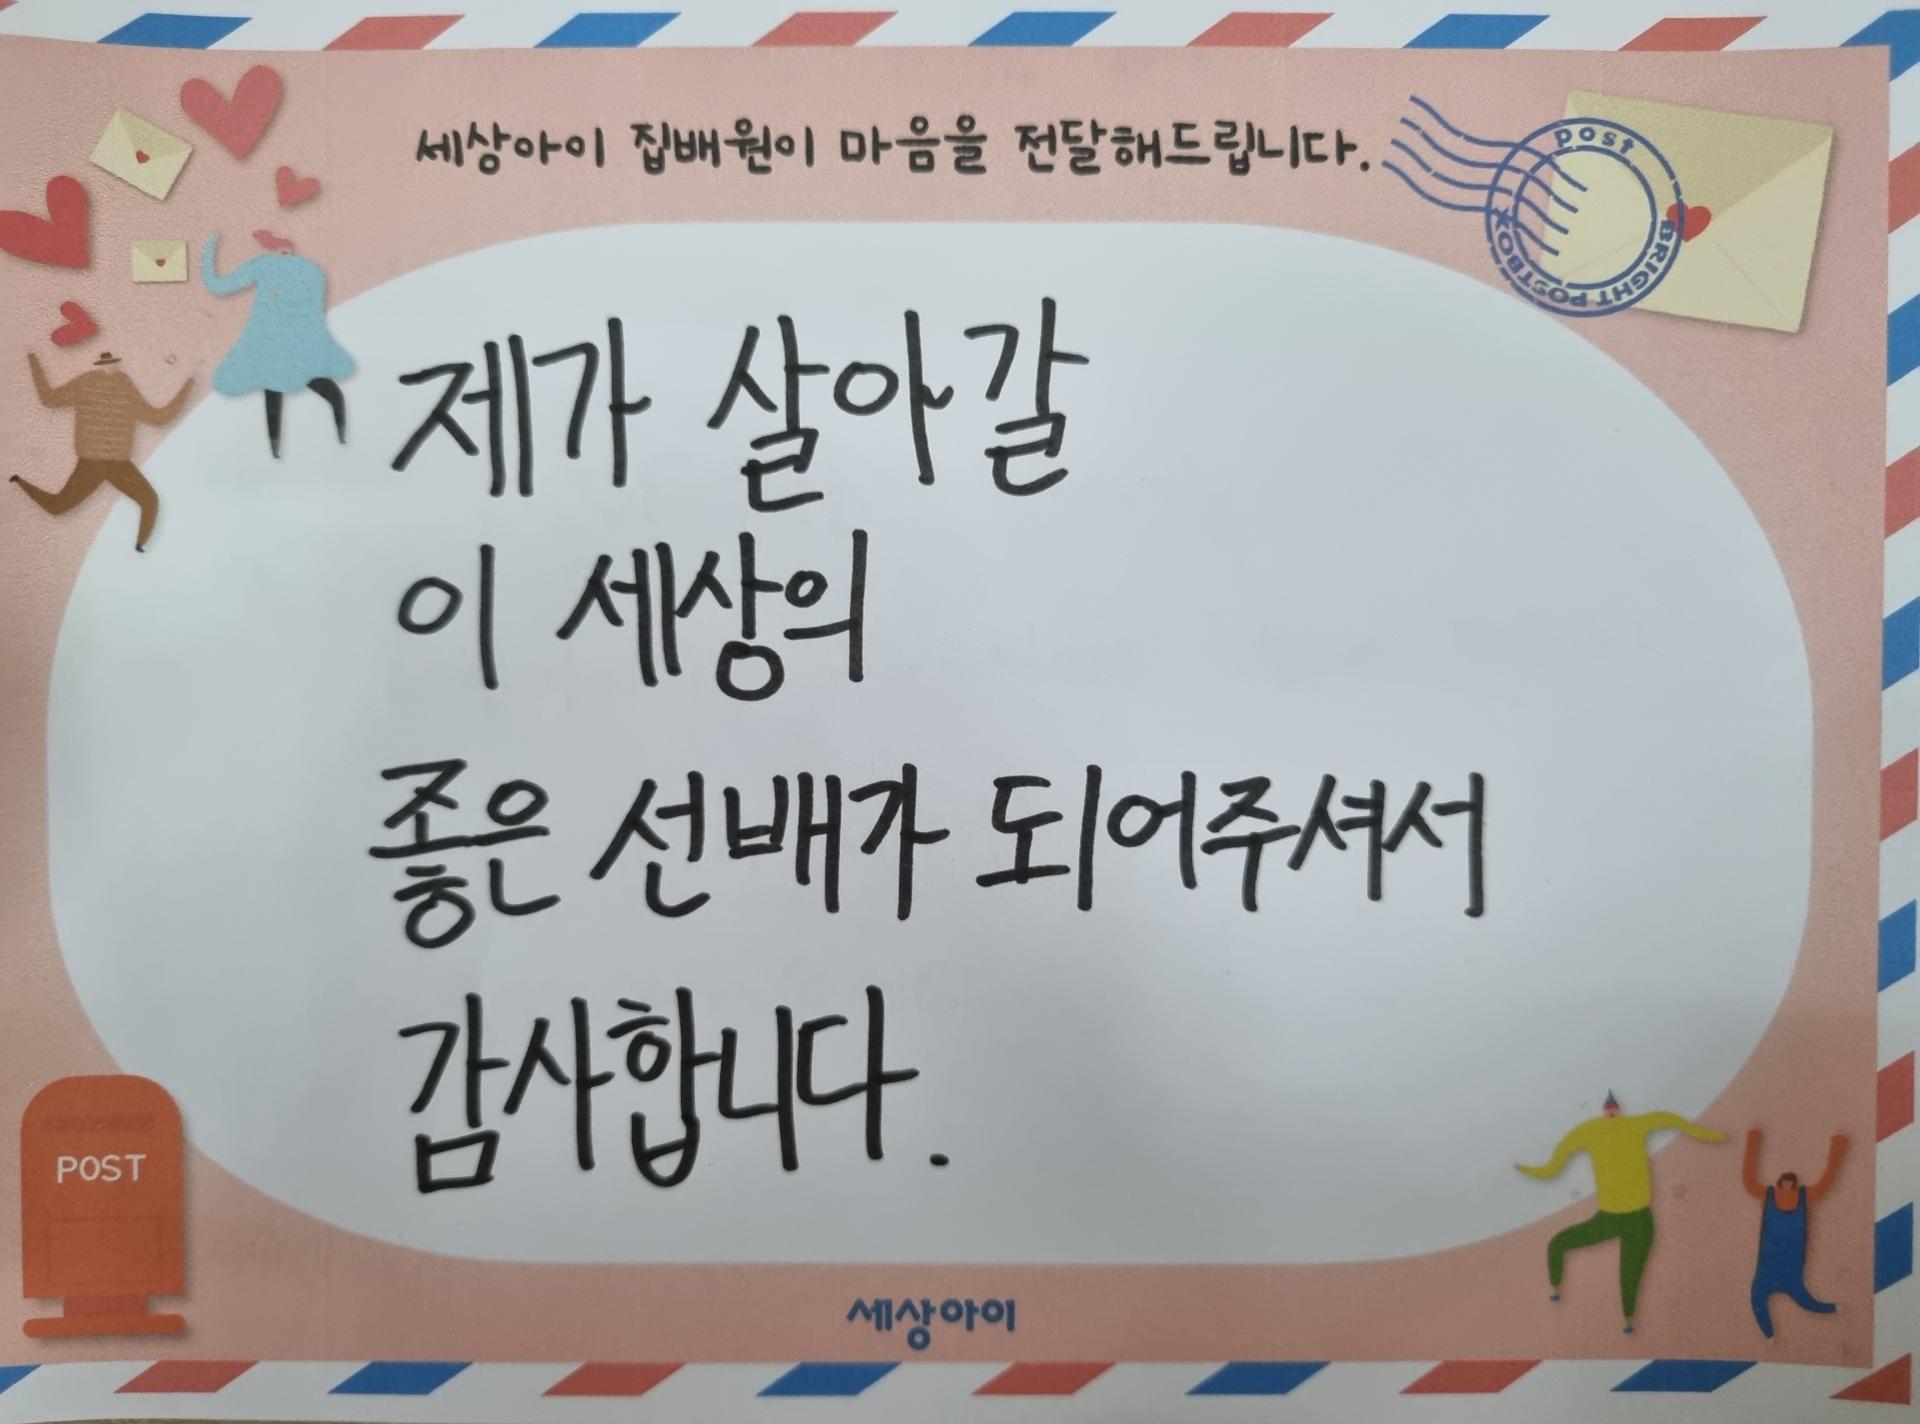 세상아이 집배원이 마음을 전달해드립니다.
post
BRIGHT POSTBOX
제가 살아갈
이 세상의
좋은 선배가 되어주셔서
감사합니다.
POST
세상아이